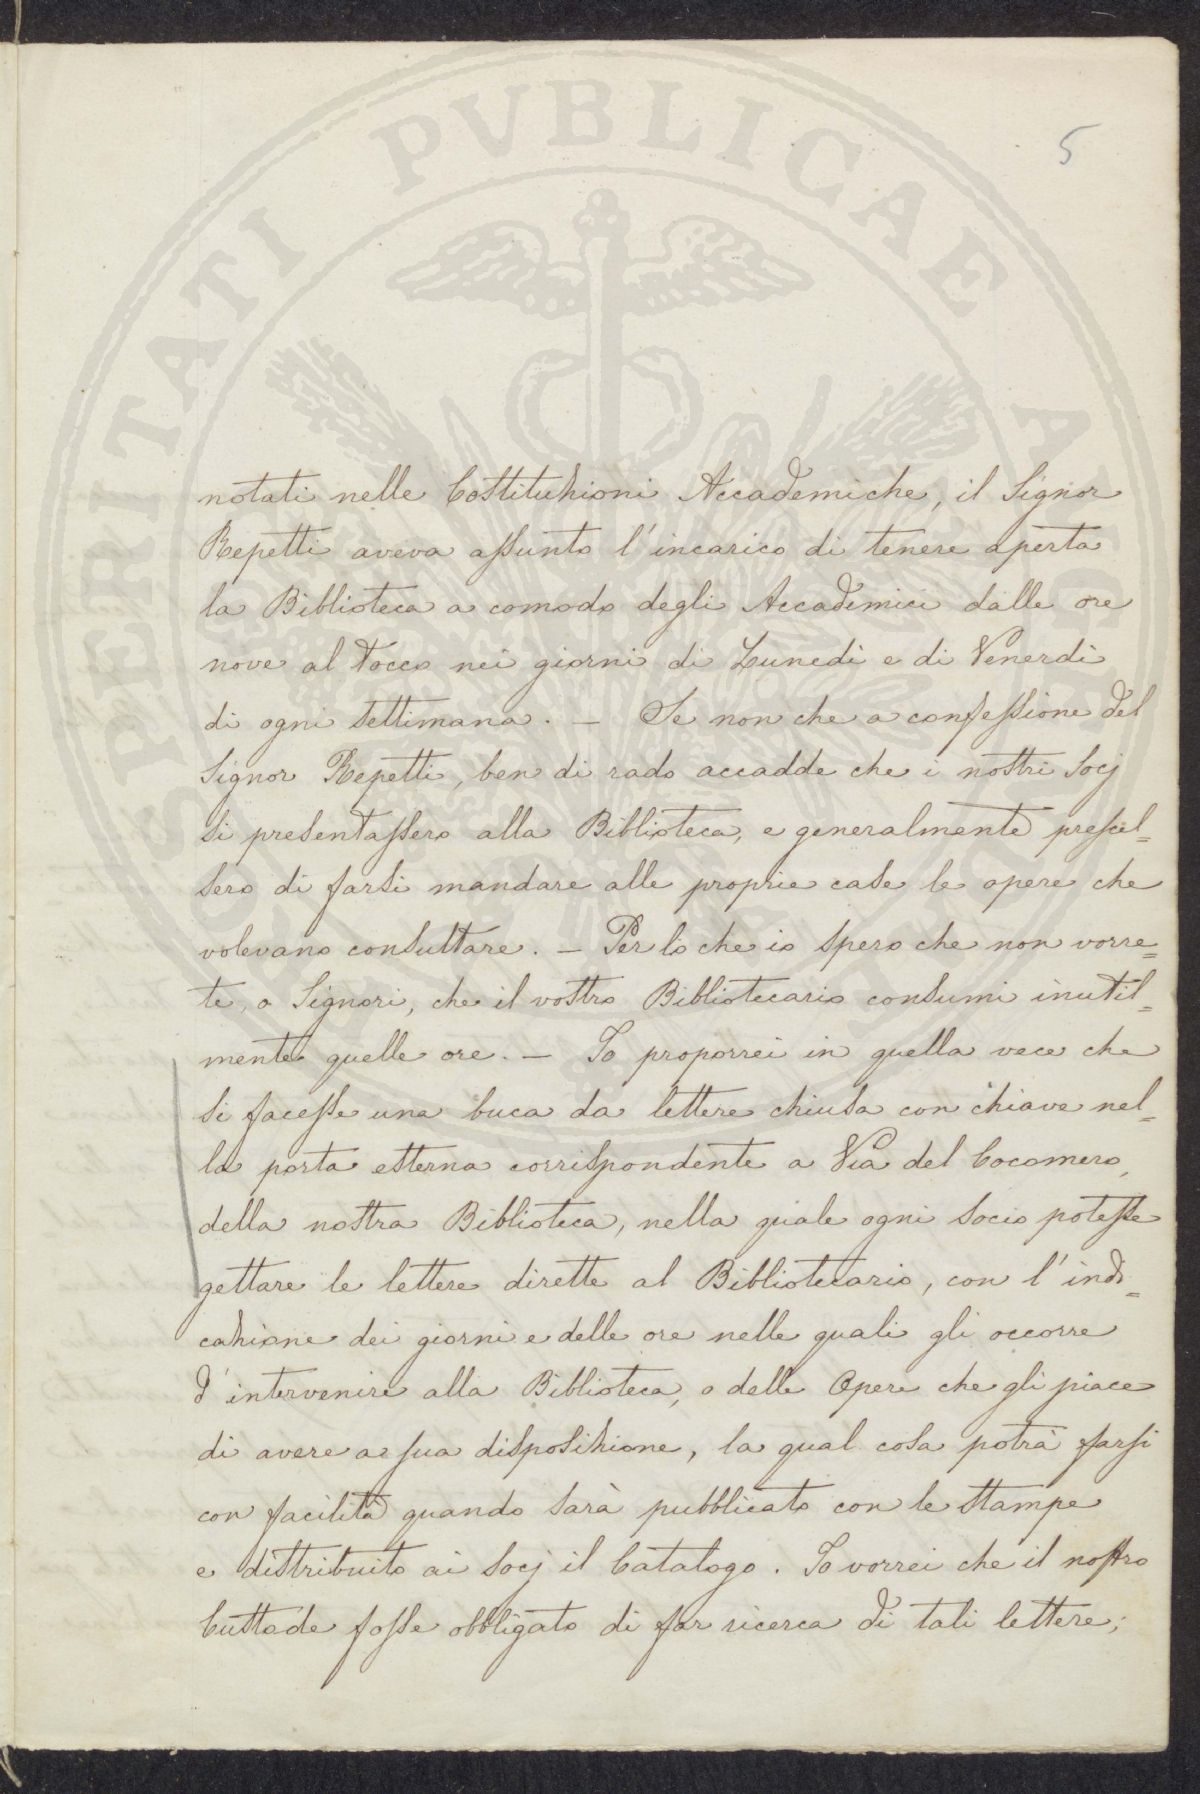 5
notati nelle Costituzioni Accademiche, il Signor
Repetti aveva assunto l'incarico di tenere aperta
la Biblioteca a comodo degli Accademici dalle ore
nove al tocco nei giorni di Lunedì e di Venerdì
di ogni settimana. — Se non che a confessione del
Signor Repetti, ben di rado accadde che i nostri Socj
si presentassero alla Biblioteca, e generalmente prescel=
sero di farsi mandare alle proprie case le opere che
volevano consultare. — Per lo che io spero che non vorre=
te, o Signori, che il vostro Bibliotecario consumi inutil=
mente quelle ore. — Io proporrei in quella vece che
si facesse una buca da lettere chiusa con chiave nel=
la porta esterna corrispondente a Via del Cocomero,
della nostra Biblioteca, nella quale ogni Socio potesse
gettare le lettere dirette al Bibliotecario, con l'indi=
cazione dei giorni e delle ore nelle quali gli occorre
d'intervenire alla Biblioteca, o delle Opere che gli piace
di avere a sua disposizione, la qual cosa potrà farsi
con facilità quando sarà pubblicato con le stampe
e distribuito ai Socj il Catalogo. Io vorrei che il nostro
Custode fosse obbligato di far ricerca di tali lettere;
PROSPERITATI PVBLICAE AVGENDAE